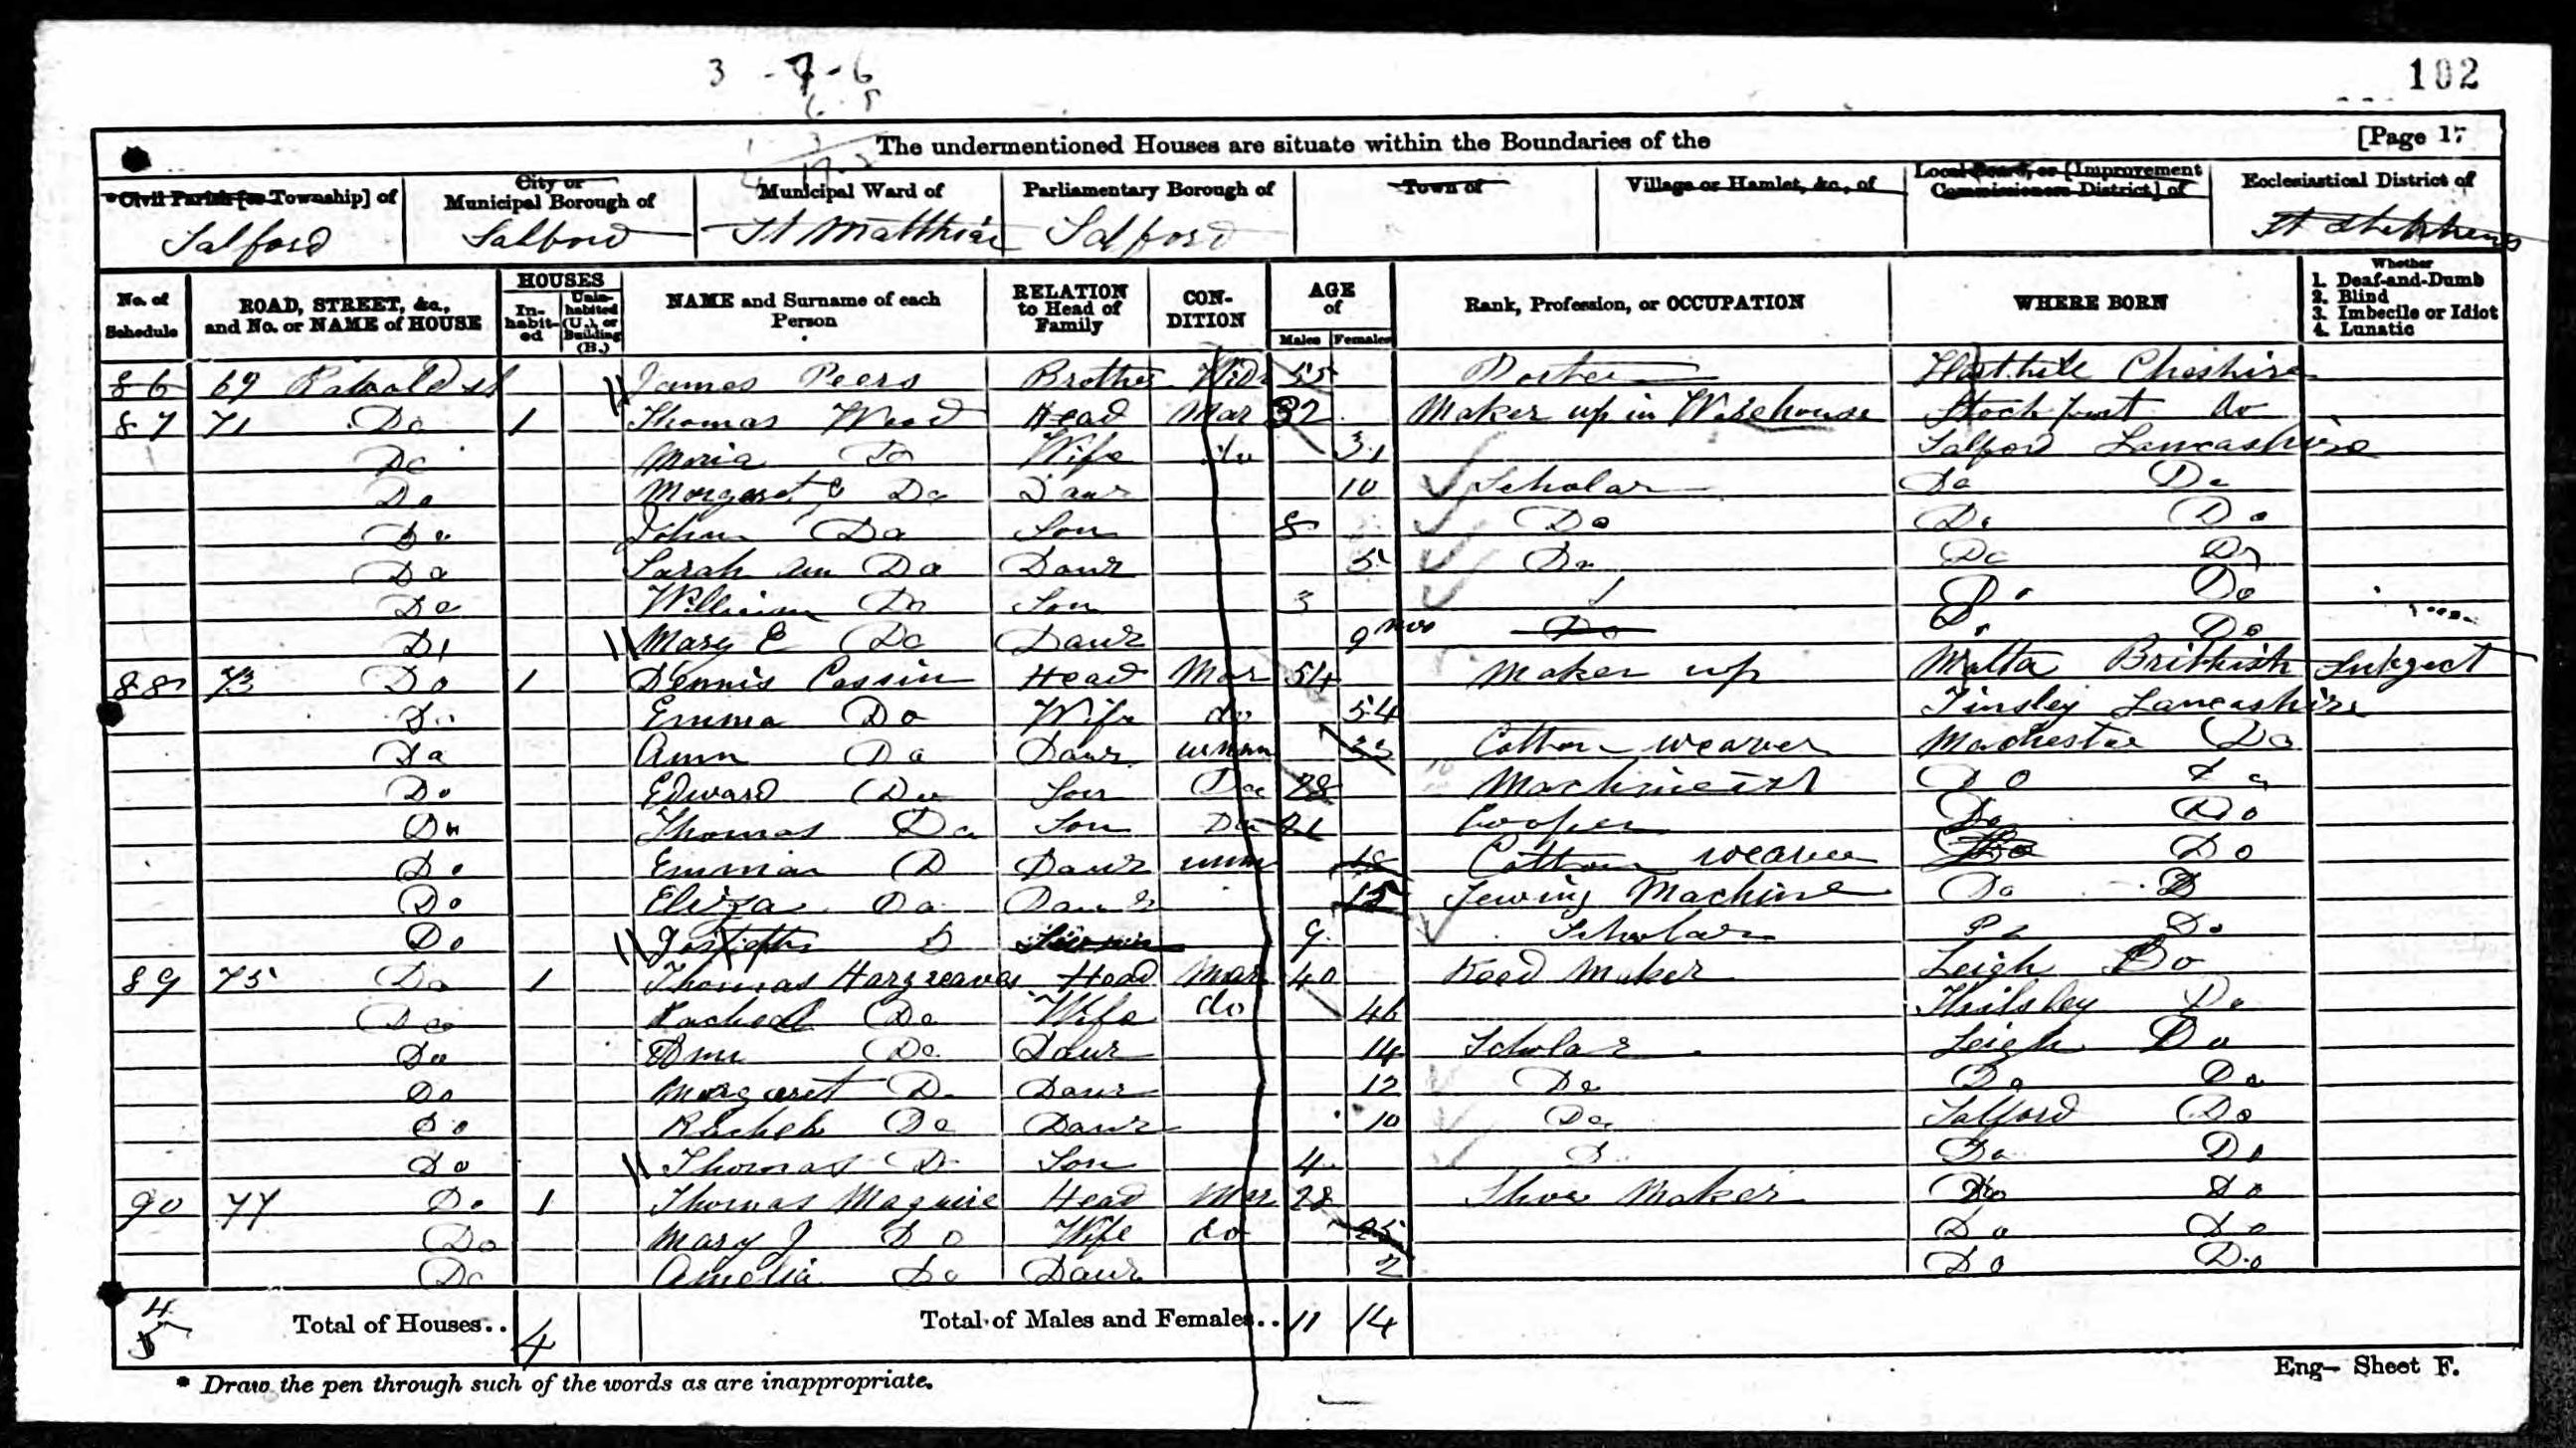 3 - 7 - 6
102
The undermentioned Houses are situate within the Boundaries of the [Page 17
*Civil Parish [or Township] of City or Municipal Borough of Municipal Ward of Parliamentary Borough of Town of Village or Hamlet, &c., of Local Board, or [Improvement Commissioners District] of Ecclesiastical District of
Salford Salford St Matthias Salford St Stephens
No. of Schedule ROAD, STREET, &c., and No. or NAME of HOUSE HOUSES Inhabited Uninhabited (U.), or Building (B.) NAME and Surname of each Person RELATION to Head of Family CONDITION AGE of Males Females Rank, Profession, or OCCUPATION WHERE BORN Whether 1. Deaf-and-Dumb 2. Blind 3. Imbecile or Idiot 4. Lunatic
86 69 James Peers Brother Widr 55 Porter Cheshire
87 71 Do 1 Thomas Wood Head Mar 32 Maker up in Warehouse Stockport do
Do Maria Do Wife do 31 Salford Lancashire
Do Margaret E Do Daur 10 Scholar Do Do
Do John Do Son 8 Do Do Do
Do Sarah Ann Do Daur 5 Do Do Do
Do William Do Son 3 Do Do
Do Mary E Do Daur 9 mos Do Do Do
88 73 Do 1 Dennis Cassin Head Mar 54 Maker up Malta Brittish Subject
Do Emma Do Wife do 54 Tinsley Lancashire
Do Ann Do Daur unmn 33 Cotton weaver Machester Do
Do Edward Do Son Do 28 Machineist Do Do
Do Thomas Do Son Do 21 Cooper Do Do
Do Emma D Daur unm 18 Cotton weaver Do Do
Do Eliza Do Daur 15 Sewing Machine Do D
Do Joseph D 9 Scholar Do Do
89 75 Do 1 Thomas Hargreaves Head Mar 40 Reed Maker Leigh Do
Do Rachel Do Wife do 46 Do
Do Ann Do Daur 14 Scholar Leigh Do
Do Margaret Do Daur 12 Do Do Do
Do Rachel Do Daur 10 Do Salford Do
Do Thomas Do Son 4 D Do Do
90 77 Do 1 Thomas Maguire Head Mar 28 Shoe Maker Do Do
Do Mary J Do Wife do 25 Do Do
Do Amelia Do Daur 2 Do Do
4
5 Total of Houses.. 4 Total of Males and Females.. 11 14
* Draw the pen through such of the words as are inappropriate.
Eng— Sheet F.